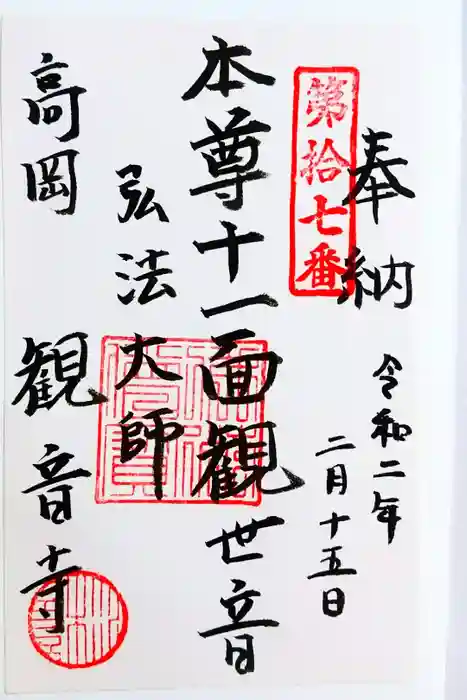 奉納
第拾七番
令和二年
二月十五日
本尊十一面観世音
弘法大師
高岡
観音寺